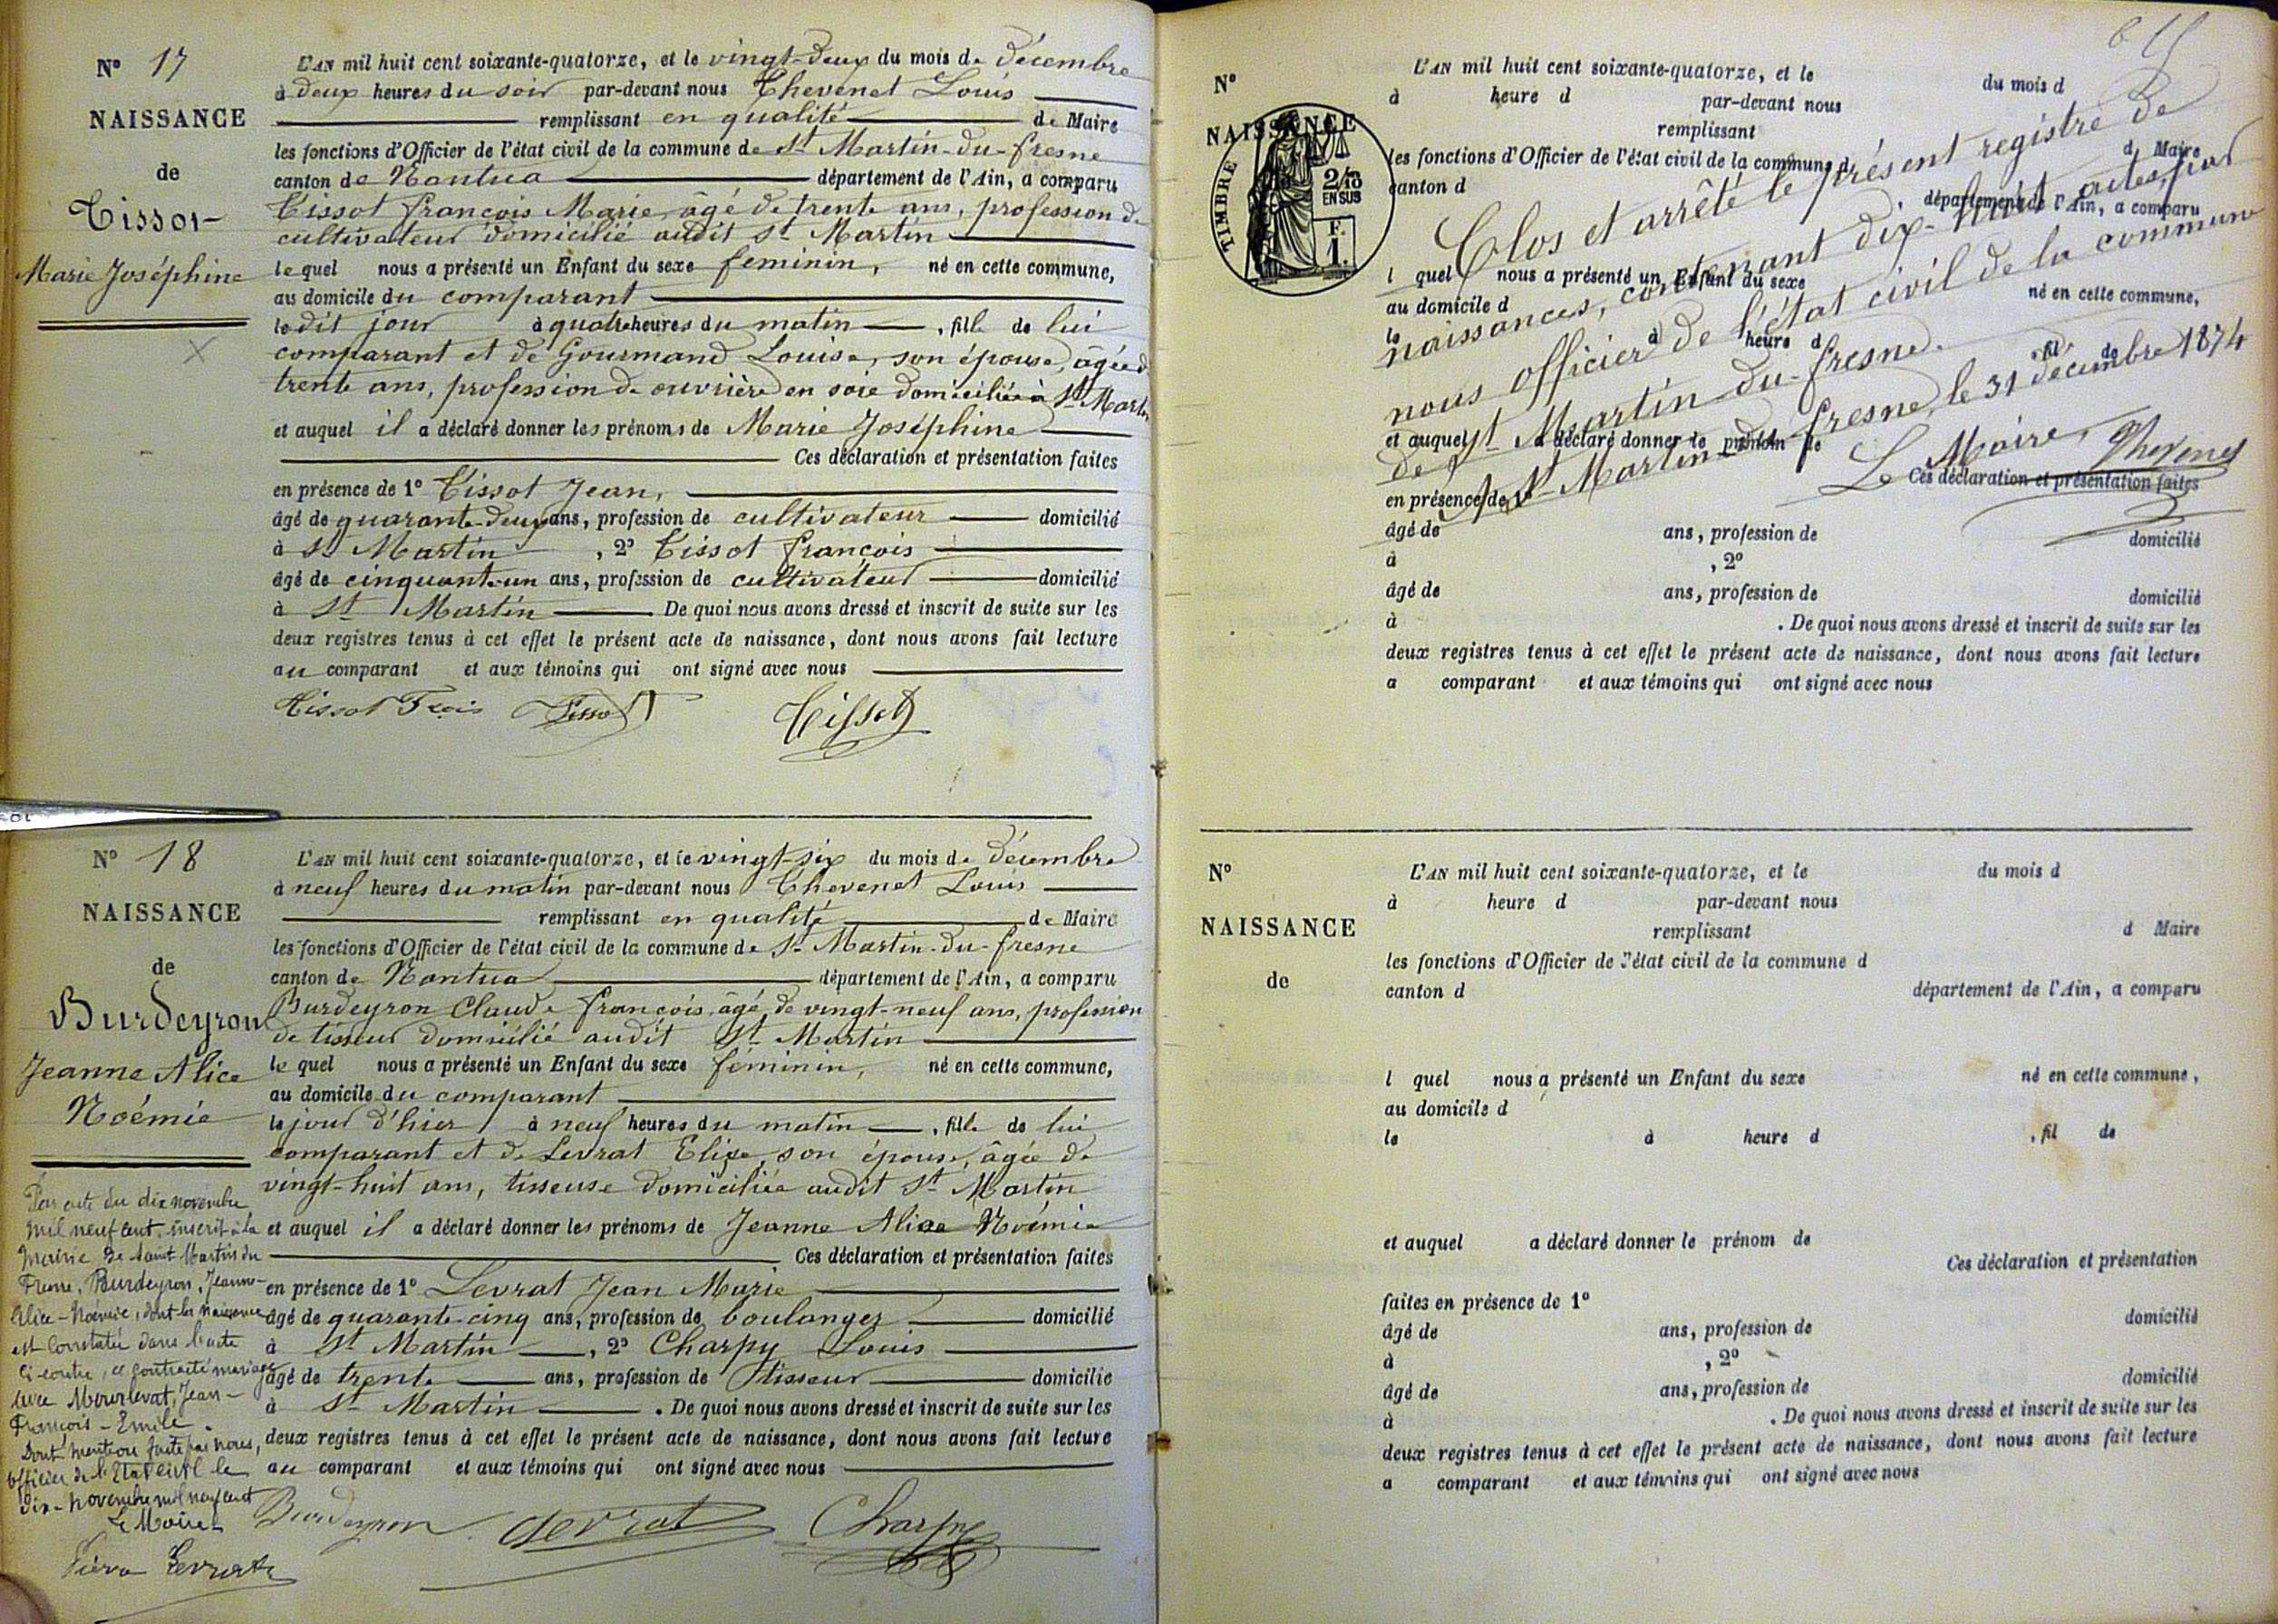 N° 17
NAISSANCE
de
Tissot
Marie Joséphine
L'AN mil huit cent soixante-quatorze, et le vingt-deux du mois de décembre
à deux heures du soir par-devant nous Chevenet Louis
remplissant en qualité de Maire
les fonctions d'Officier de l'état civil de la commune de St Martin-du-fresne
canton de Nantua département de l'Ain, a comparu
Tissot françois Marie, âgé de trente ans, profession de
cultivateur domicilié audit St Martin
le quel nous a présenté un Enfant du sexe féminin, né en cette commune,
au domicile du comparant
le dit jour à quatre heures du matin , fille de lui
comparant et de Gourmand Louise, son épouse, âgée de
trente ans, profession de ouvrière en soie domiciliée à St Martin
et auquel il a déclaré donner les prénoms de Marie Joséphine
Ces déclaration et présentation faites
en présence de 1° Tissot Jean,
âgé de quarante-deux ans, profession de cultivateur domicilié
à St Martin , 2° Tissot françois
âgé de cinquante-un ans, profession de cultivateur domicilié
à St Martin De quoi nous avons dressé et inscrit de suite sur les
deux registres tenus à cet effet le présent acte de naissance, dont nous avons fait lecture
au comparant et aux témoins qui ont signé avec nous
Tissot Fçois Tissot Tissot
N° 18
NAISSANCE
de
Burdeyron
Jeanne Alice
Noémie
L'AN mil huit cent soixante-quatorze, et le vingt-six du mois de décembre
à neuf heures du matin par-devant nous Chevenet Louis
remplissant en qualité de Maire
les fonctions d'Officier de l'état civil de la commune de St Martin-du-fresne
canton de Nantua département de l'Ain, a comparu
Burdeyron Claude françois, âgé de vingt-neuf ans, profession
de tisseur domicilié audit St Martin
le quel nous a présenté un Enfant du sexe féminin, né en cette commune,
au domicile du comparant
le jour d'hier à neuf heures du matin , fille de lui
comparant et de Levrat Elise, son épouse, âgée de
vingt-huit ans, tisseuse domiciliée audit St Martin
et auquel il a déclaré donner les prénoms de Jeanne Alice Noémie
Ces déclaration et présentation faites
en présence de 1° Levrat Jean Marie
âgé de quarante-cinq ans, profession de boulanger domicilié
à St Martin , 2° Charpy Louis
âgé de trente ans, profession de tisseur domicilié
à St Martin . De quoi nous avons dressé et inscrit de suite sur les
deux registres tenus à cet effet le présent acte de naissance, dont nous avons fait lecture
au comparant et aux témoins qui ont signé avec nous
Burdeyron Levrat Charpy
Par acte du dix novembre
mil neuf cent, inscrit à la
mairie de Saint Martin du
Fresne, Burdeyron, Jeanne-
Alice-Noémie, dont la naissance
est constatée dans l'acte
ci-contre, a contracté mariage
avec Jean-
François-Emile.
Dont mention faite par nous,
officier de l'Etat civil le
dix-novembre mil neuf cent
Le Maire
Levrat
N°
NAISSANCE
TIMBRE
2/10
EN SUS
F.
1.
L'AN mil huit cent soixante-quatorze, et le du mois d
à heure d par-devant nous
remplissant d Maire
les fonctions d'Officier de l'état civil de la commune d
canton d département de l'Ain, a comparu
l quel nous a présenté un Enfant du sexe né en cette commune,
au domicile d
le à heure d , fil de
et auquel a déclaré donner le prénom de
Ces déclaration et présentation faites
en présence de 1°
âgé de ans, profession de domicilié
à , 2°
âgé de ans, profession de domicilié
à . De quoi nous avons dressé et inscrit de suite sur les
deux registres tenus à cet effet le présent acte de naissance, dont nous avons fait lecture
a comparant et aux témoins qui ont signé avec nous
Clos et arrêté le présent registre de
naissances, contenant dix-huit actes, par
nous officier de l'état civil de la commune
de St Martin-du-fresne.
A St Martin du fresne, le 31 décembre 1874
Le Maire, Chevenet
N°
NAISSANCE
de
L'AN mil huit cent soixante-quatorze, et le du mois d
à heure d par-devant nous
remplissant d Maire
les fonctions d'Officier de l'état civil de la commune d
canton d département de l'Ain, a comparu
l quel nous a présenté un Enfant du sexe né en cette commune,
au domicile d
le à heure d , fil de
et auquel a déclaré donner le prénom de
Ces déclaration et présentation
faites en présence de 1°
âgé de ans, profession de domicilié
à , 2°
âgé de ans, profession de domicilié
à . De quoi nous avons dressé et inscrit de suite sur les
deux registres tenus à cet effet le présent acte de naissance, dont nous avons fait lecture
a comparant et aux témoins qui ont signé avec nous